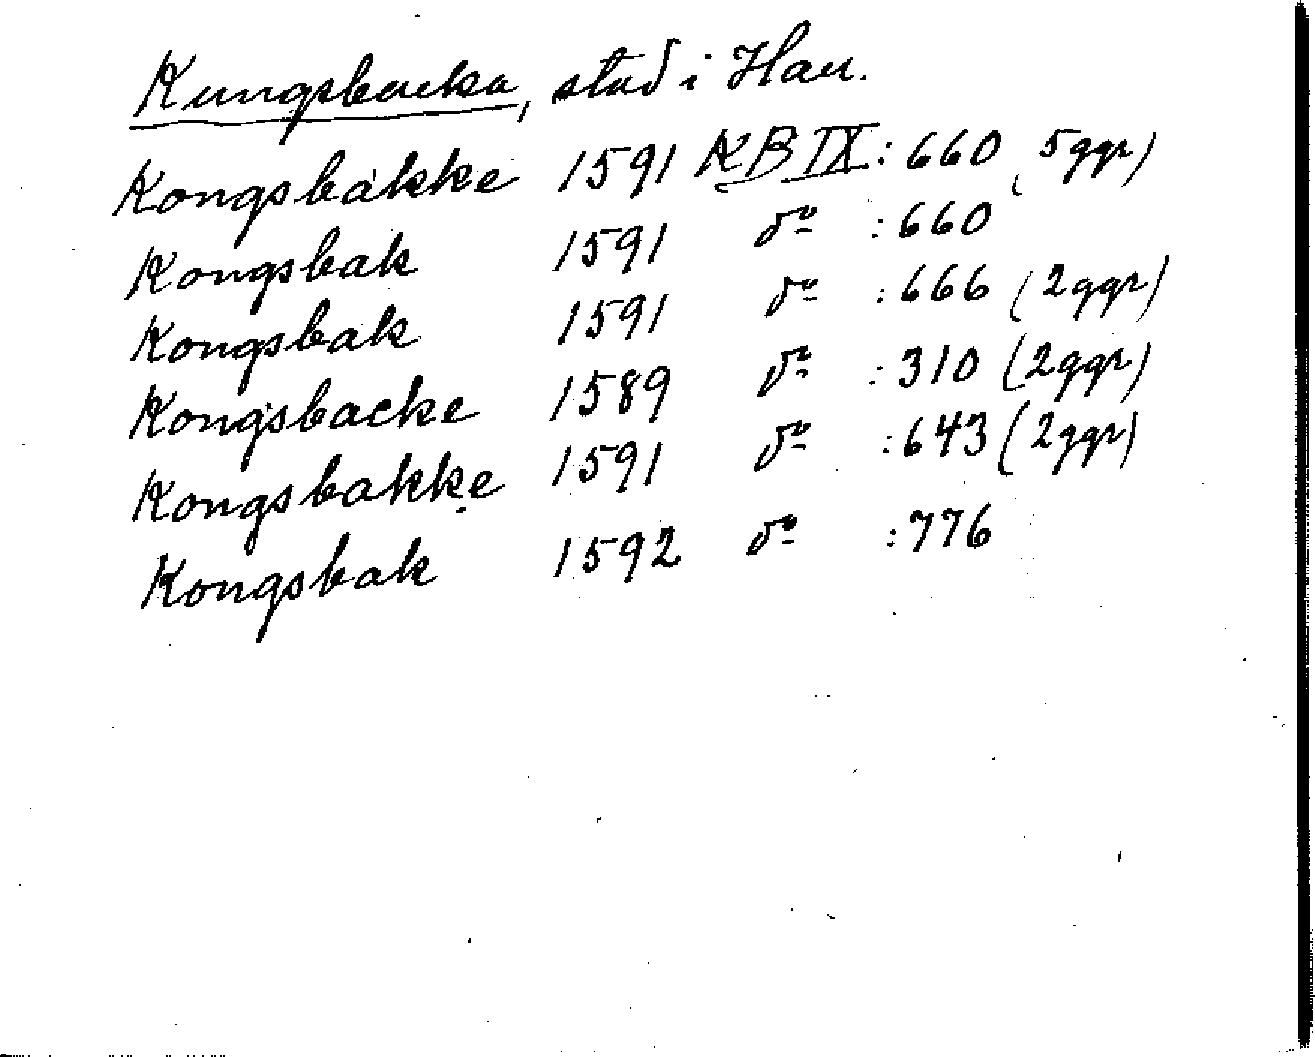 Kungsbacka, stad i Hall.
Kongsbakke 1591 KB IX: 660 (5ggr)
Kongsbak 1591 do :660
Kongsbak 1591 do :666 (2ggr)
Kongsbacke 1589 do :310 (2ggr)
Kongsbakke 1591 do :643 (2ggr)
Kongsbak 1592 do :776